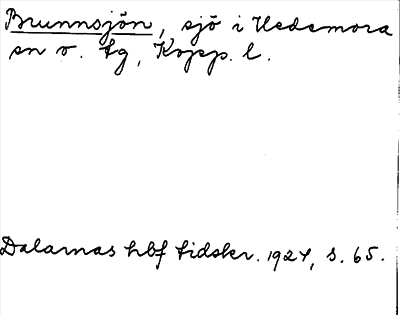 Brunnsjön, sjö i Hedemora
sn o. tg, Kopp. l.
Dalarnas hbf tidskr. 1924, s. 65.